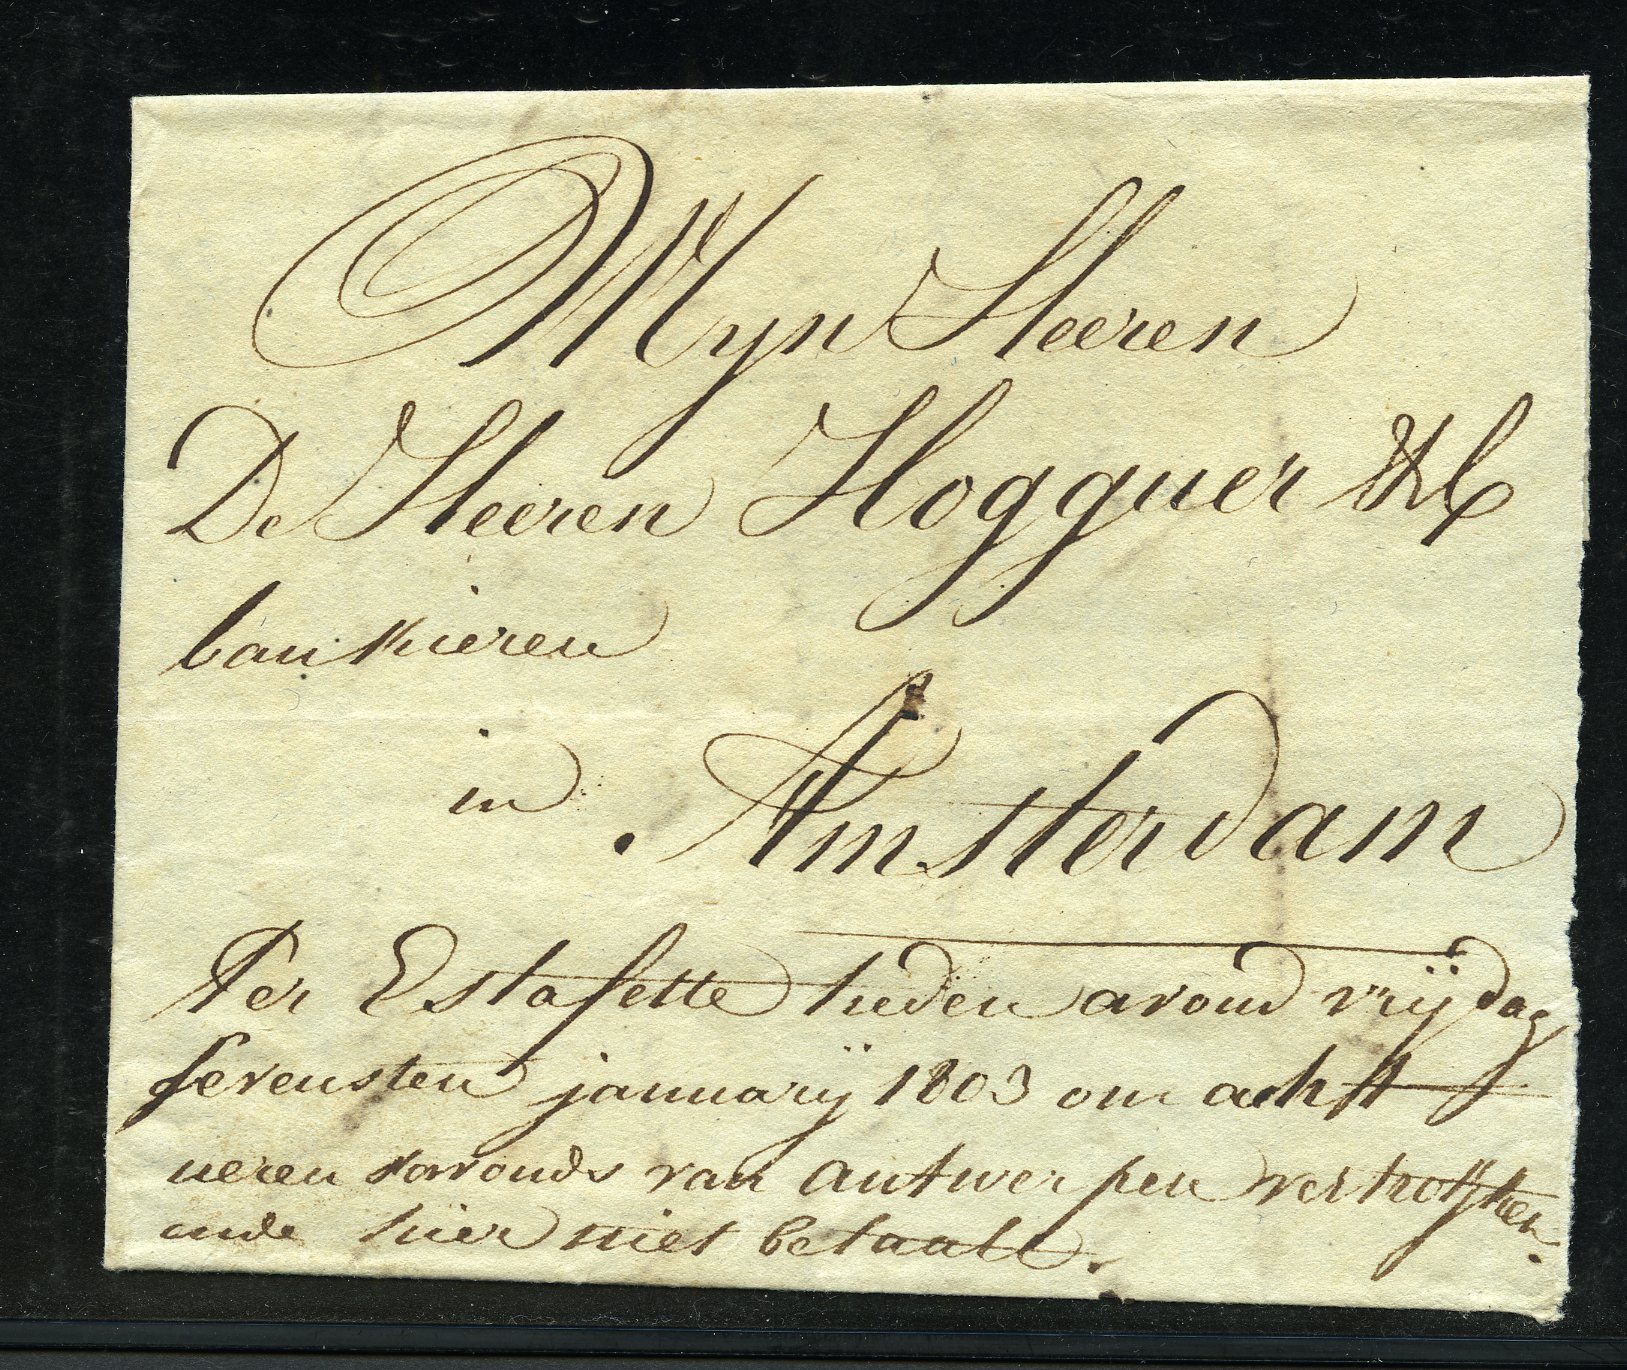 Myn Heeren
De Heeren Hogguer & C
bankieren
in Amsterdam
Per Estafette heden avond vrijdag
sevensten january 1803 om acht
ueren savonds van antwerpen vertrokken
ende hier niet betaalt.